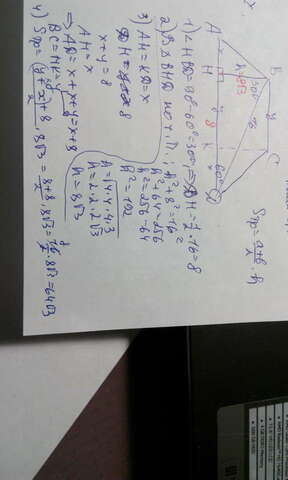 A H K D
B C
y
8
x
30°
16
60°
h 8√3
Sтр = a+b/2 · h
1) ∠HBD = 90° - 60° = 30° ⇒ DH = 1/2 · 16 = 8
2) BH
h² + 8² = 16²
h² + 64 = 256
h² = 256 - 64
h² = 192
h = √4·4·4·3
h = 2·2·2√3
h = 8√3
3) AH = KD = x
DH = 8
x + y = 8
AH = x
⇒ AD = x + x + y = x + 8
BC = HK = y
4) Sтр = (y + x) + 8 / 2 · 8√3 = 8 + 8 / 2 · 8√3 = 16/2 · 8√3 = 64√3